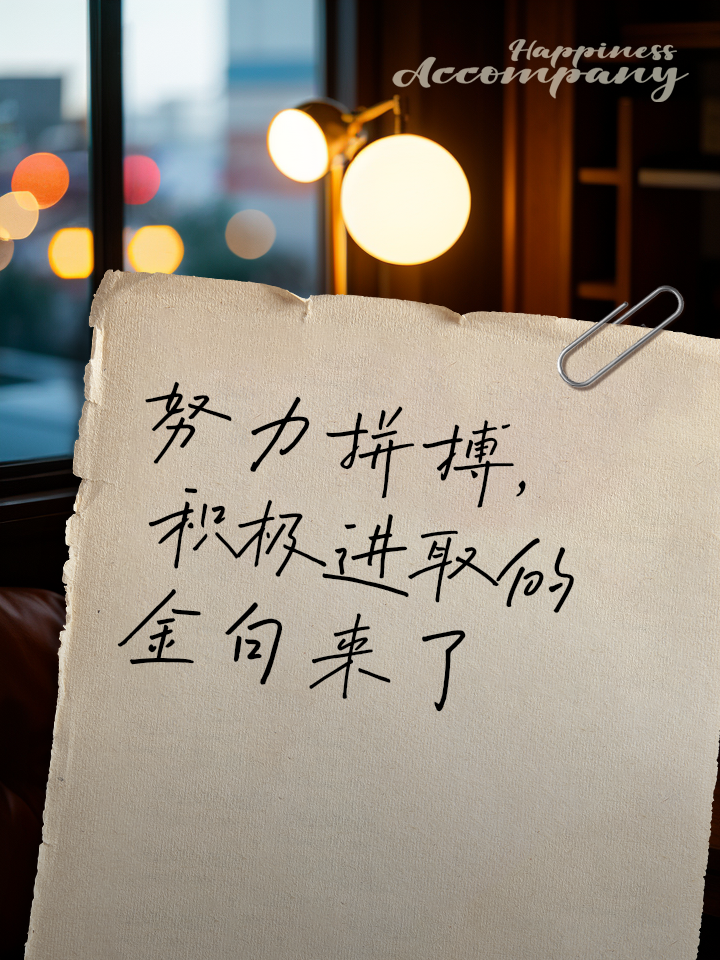 Happiness
Accompany
努力拼搏,
积极进取的
金句来了